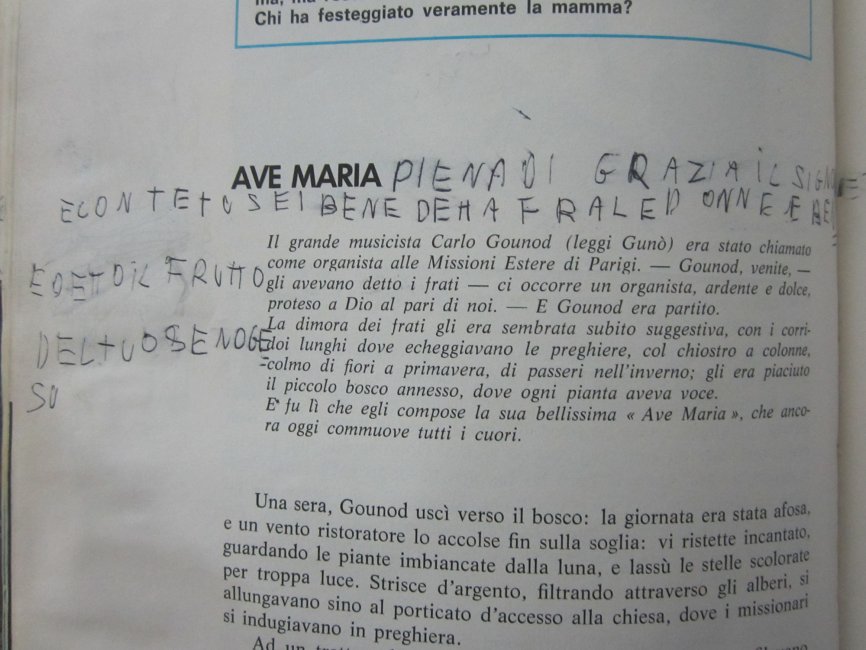 Chi ha festeggiato veramente la mamma?
AVE MARIA PIENA DI GRAZIA IL SIGNO
E CON TE TU SEI BENEDETTA FRA LE DONNE E BE
E DETTO IL FRUTTO
DEL TUO SENO GE
SU
Il grande musicista Carlo Gounod (leggi Gunò) era stato chiamato
come organista alle Missioni Estere di Parigi. — Gounod, venite, —
gli avevano detto i frati — ci occorre un organista, ardente e dolce,
proteso a Dio al pari di noi. — E Gounod era partito.
La dimora dei frati gli era sembrata subito suggestiva, con i corri-
doi lunghi dove echeggiavano le preghiere, col chiostro a colonne,
colmo di fiori a primavera, di passeri nell'inverno; gli era piaciuto
il piccolo bosco annesso, dove ogni pianta aveva voce.
E' fu lì che egli compose la sua bellissima « Ave Maria », che anco-
ra oggi commuove tutti i cuori.
Una sera, Gounod uscì verso il bosco: la giornata era stata afosa,
e un vento ristoratore lo accolse fin sulla soglia: vi ristette incantato,
guardando le piante imbiancate dalla luna, e lassù le stelle scolorate
per troppa luce. Strisce d'argento, filtrando attraverso gli alberi, si
allungavano sino al porticato d'accesso alla chiesa, dove i missionari
si indugiavano in preghiera.
Ad un